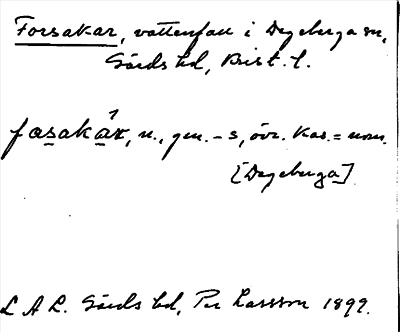 Forsakar, vattenfall i Degeberga sn,
Gärds hd, Krist. l.
fasakár, n., gen. -s, övr. kas. = nom.
[Degeberga]
L A L. Gärds hd, Per Larsson 1899.